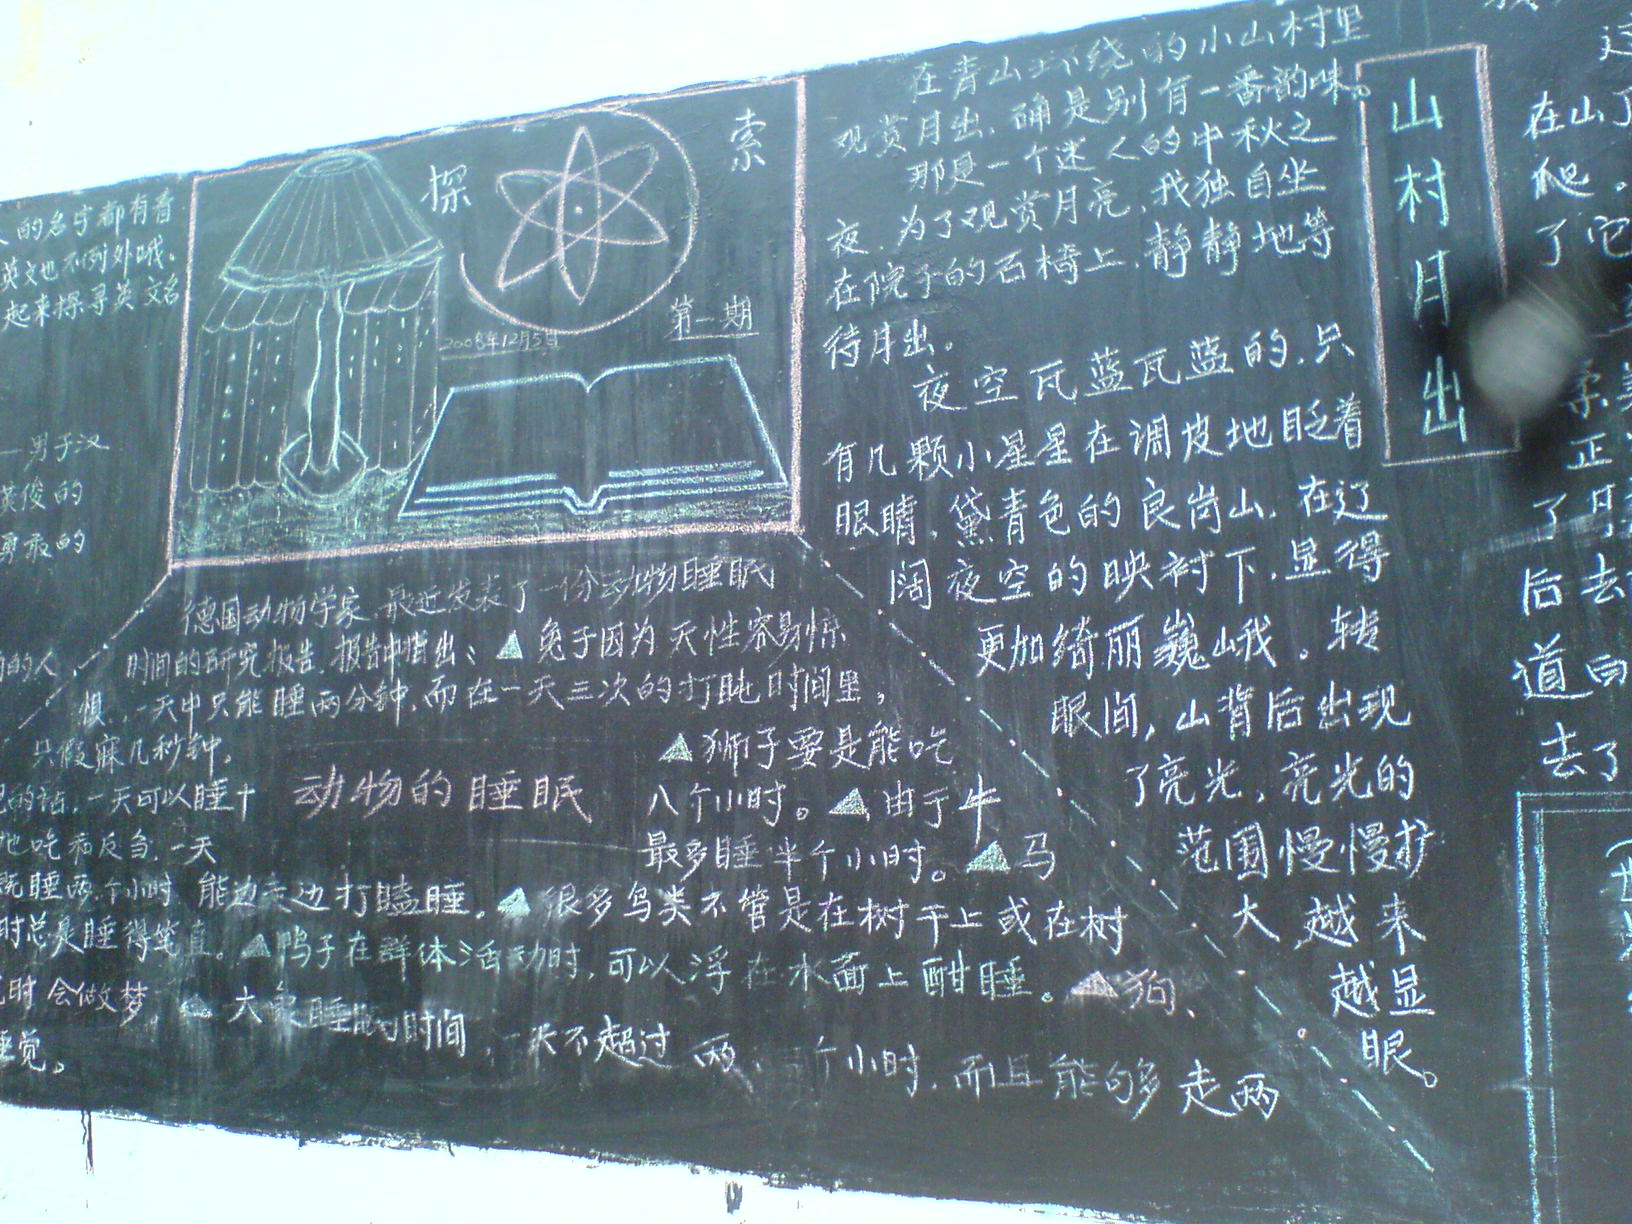 人的名字都有着
英文也不列外哦。
起来探寻英文名
一男子汉
英俊的
勇敢的
的人
探
索
第一期
2008年12月5日
德国动物学家,最近发表了一份动物睡眠
时间的研究报告,报告中指出:▲兔子因为天性容易惊
惧,一天中只能睡两分钟,而在一天三次的打盹时间里,
只假寐几秒钟。
▲狮子要是能吃
的话,一天可以睡十
动物的睡眠
八个小时。▲由于牛
地吃和反刍,一天
最多睡半个小时。▲马
既睡两个小时,能边走边打瞌睡。▲很多鸟类不管是在树干上或在树
时总是睡得笔直。▲鸭子在群体活动时,可以浮在水面上酣睡。▲狗、
时会做梦。▲大象睡眠的时间,一天不超过两、三个小时,而且能够走两
睡觉。
在青山环绕的小山村里
观赏月出,确是别有一番韵味。
那是一个迷人的中秋之
夜,为了观赏月亮,我独自坐
在院子的石椅上,静静地等
待月出。
夜空瓦蓝瓦蓝的,只
有几颗小星星在调皮地眨着
眼睛,黛青色的良岗山,在辽
阔夜空的映衬下,显得
更加绮丽巍峨。转
眼间,山背后出现
了亮光,亮光的
范围慢慢扩
大,越来
越显
眼。
山村月出
在山了
爬。
了它
柔美
正
了月
后去
道向
去了